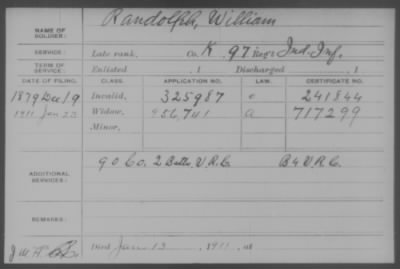 NAME OF SOLDIER: Randolph, William
SERVICE: Late rank, Co. K. 97 Reg't Ind. Inf.
TERM OF SERVICE: Enlisted , 1 Discharged , 1
DATE OF FILING. CLASS. APPLICATION NO. LAW. CERTIFICATE NO.
1879 Dec 19 Invalid, 325987 241844
1911 Jan 23 Widow, 956,741 a 717299
Minor,
ADDITIONAL SERVICES: 90 Co. 2 Batt. V.R.C. B 4 V.R.C.
REMARKS:
Died Jan 13, 1911, at